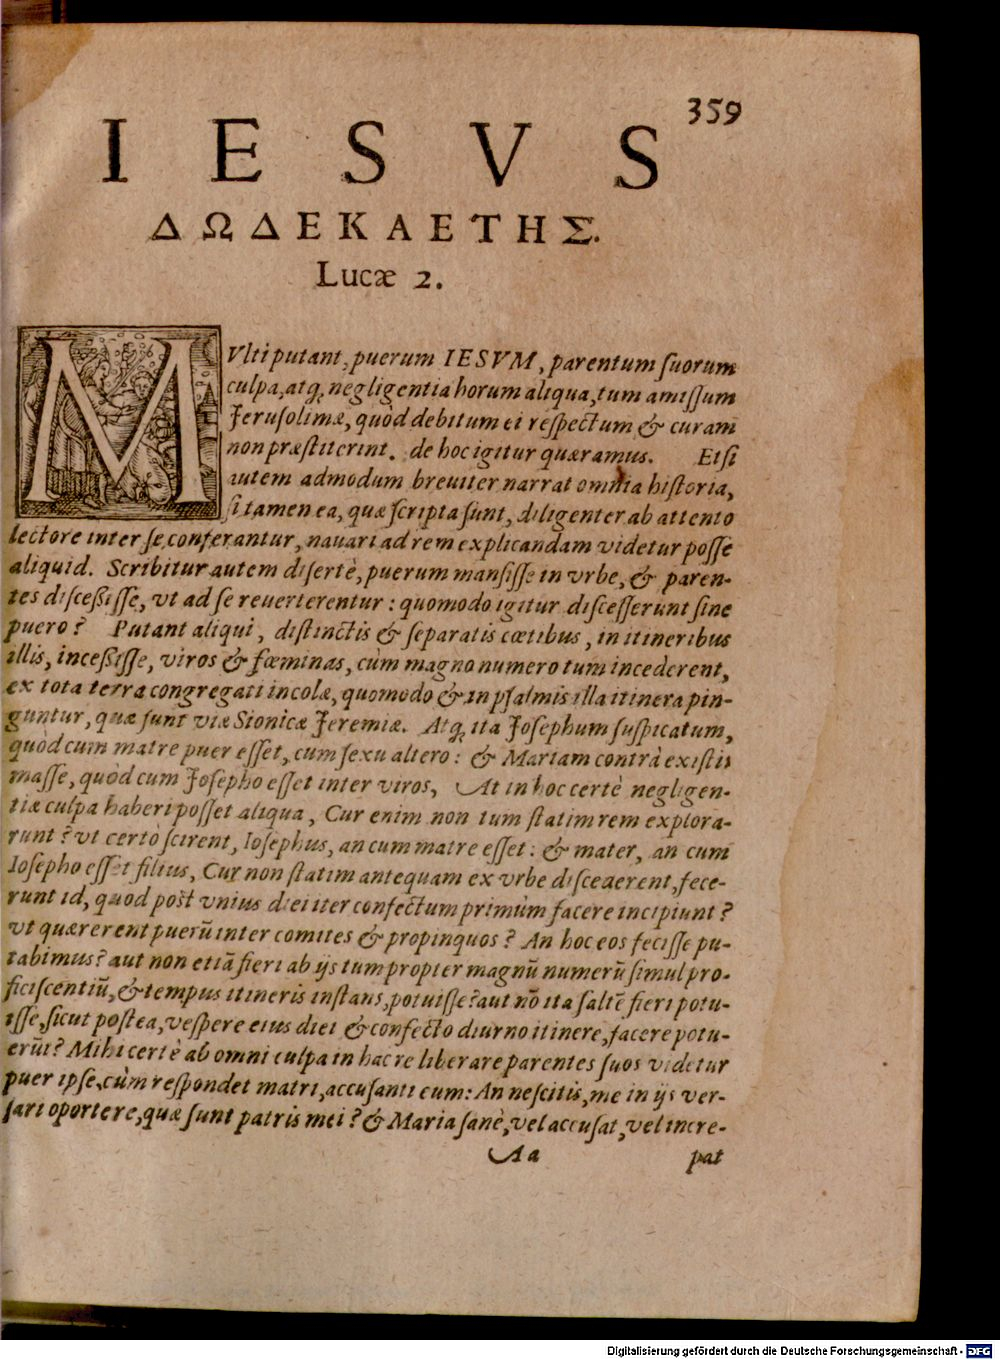 359
IESVS
ΔΩΔΕΚΑΕΤΗΣ.
Lucæ 2.
MVlti putant, puerum IESVM, parentum ſuorum
culpa, atq; negligentia horum aliqua, tum amiſſum
Jeruſolimæ, quòd debitum ei reſpectum & curam
non præſtiterint. de hoc igitur quæramus. Etſi
autem admodum breuiter narrat omnia hiſtoria,
ſi tamen ea, quæ ſcripta ſunt, diligenter ab attento
lectore inter ſe conferantur, nauari ad rem explicandam videtur poſſe
aliquid. Scribitur autem diſertè, puerum manſiſſe in vrbe, & paren-
tes diſceßiſſe, vt ad ſe reuerterentur: quomodo igitur diſceſſerunt ſine
puero? Putant aliqui, diſtinctis & ſeparatis cœtibus, in itineribus
illis, inceßiſſe, viros & fœminas, cùm magno numero tum incederent,
ex tota terra congregati incolæ, quomodo & in pſalmis illa itinera pin-
guntur, quæ ſunt viæ Sionicæ Jeremiæ. Atq; ita Joſephum ſuſpicatum,
quòd cum matre puer eſſet, cum ſexu altero: & Mariam contrà exiſti
maſſe, quòd cum Joſepho eſſet inter viros, At in hoc certè negligen-
tiæ culpa haberi poſſet aliqua, Cur enim non tum ſtatim rem explora-
runt? vt certò ſcirent, Ioſephus, an cum matre eſſet: & mater, an cum
Ioſepho eſſet filius, Cur non ſtatim antequam ex vrbe diſcederent, fece-
runt id, quod poſt vnius diei iter confectum primùm facere incipiunt?
vt quærerent puerũ inter comites & propinquos? An hoc eos feciſſe pu-
tabimus? aut non etiã fieri ab ijs tum propter magnũ numerũ ſimul pro-
ficiſcentiũ, & tempus itineris inſtans, potuiſſe? aut nõ ita ſaltẽ fieri potu-
iſſe, ſicut poſtea, veſpere eius diei & confecto diurno itinere, facere potu-
erũt? Mihi certè ab omni culpa in hac re liberare parentes ſuos videtur
puer ipſe, cùm reſpondet matri, accuſanti eum: An neſcitis, me in ijs ver-
ſari oportere, quæ ſunt patris mei? & Maria ſanè, vel accuſat, vel incre-
Aa pat
Digitalisierung gefördert durch die Deutsche Forschungsgemeinschaft - DFG